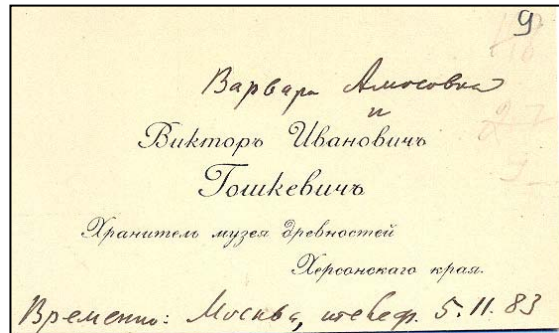 9
Варвара Амосовна
и
Викторъ Ивановичъ
Гошкевичъ
Хранитель музея древностей
Херсонскаго края.
Временно: Москва, телеф. 5.11.83